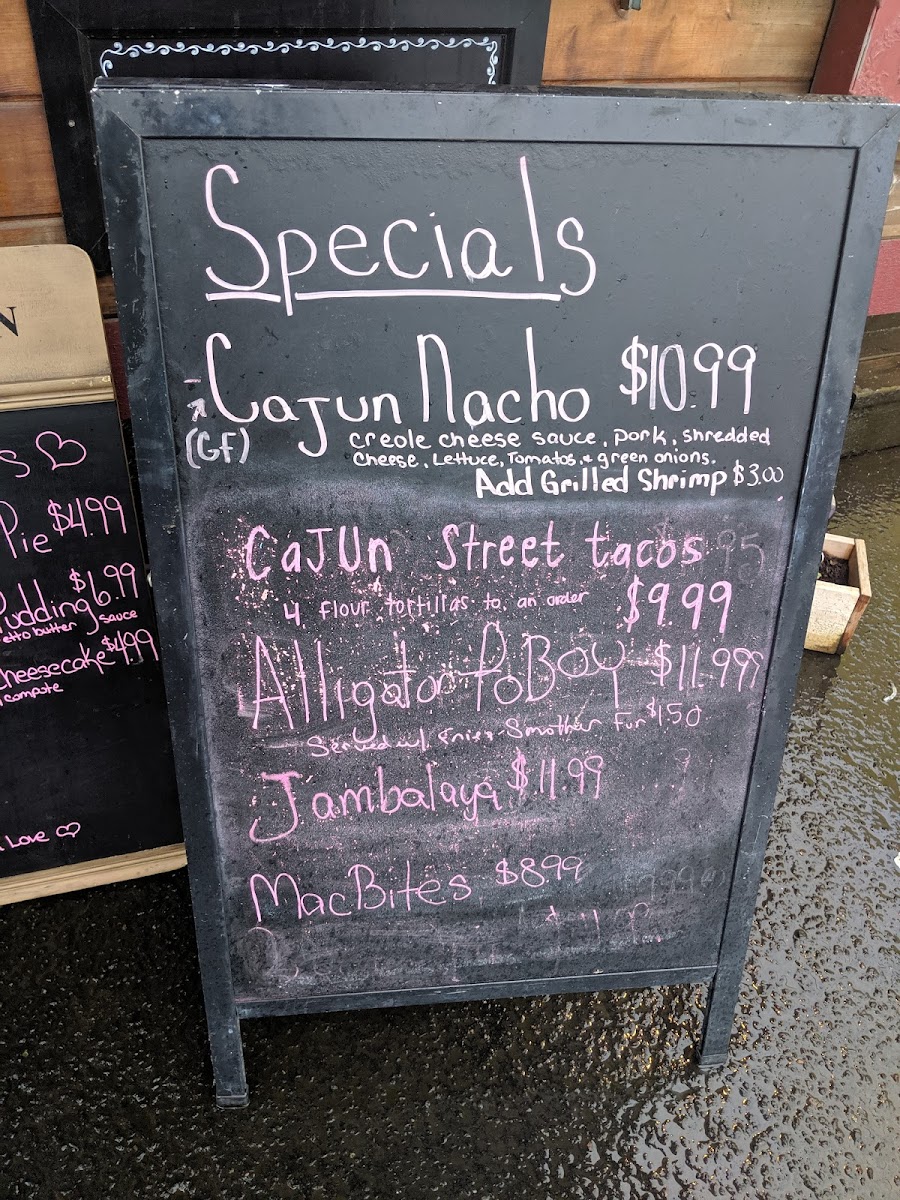 Specials
Cajun Nacho $10.99
(GF)
creole cheese sauce, pork, shredded
cheese, Lettuce, Tomatos, & green onions.
Add Grilled Shrimp $3.00
Cajun Street tacos
4 flour tortillas to an order $9.99
Alligator PoBoy $11.99
Served w/ Fries - Smother Fur $1.50
Jambalaya $11.99
MacBites $8.99
N
s ♡
Pie $4.99
Pudding $6.99
etto butter sauce
heesecake $4.99
compote
Love ♡